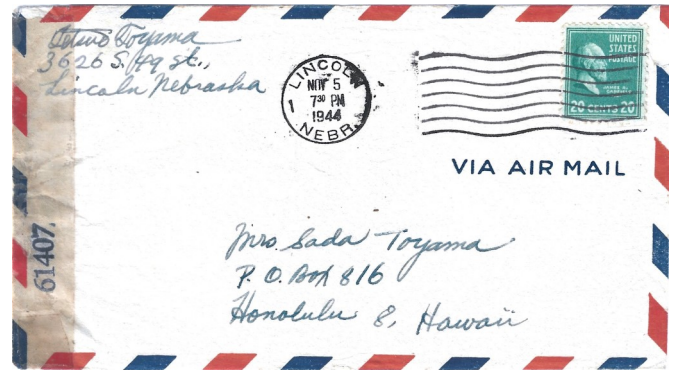 Toyama
3626 S. st.,
Lincoln Nebraska
LINCOLN
NOV 5
7 30 PM
1944
NEBR.
1
UNITED
STATES
POSTAGE
20 CENTS 20
VIA AIR MAIL
61407
Mrs. Sada Toyama
P. O. Box 816
Honolulu 8, Hawaii